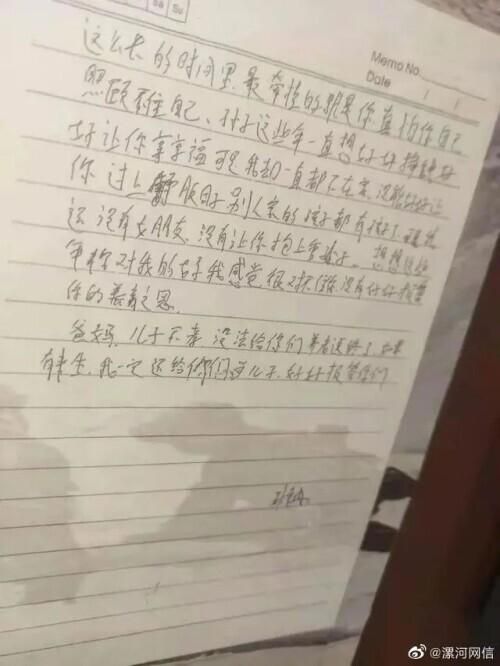 Sa Su
Memo No.
Date / /
这么长的时间里最牵挂的就是你,真怕你自己
照顾不住自己、孙子这些年一直想好好挣钱好
好让你享享福可是我却一直都不在家,没能好好让
你过上舒服日子别人家的孩子都有孩子了,
还没有女朋友,没有让你抱上
对我的好我感觉很对不起你,没有好好报答
你的养育之恩
爸妈,儿子不孝 没法给你们养老送终了,如果
有来生,我一定还给你们当儿子,好好报答你们
@漯河网信